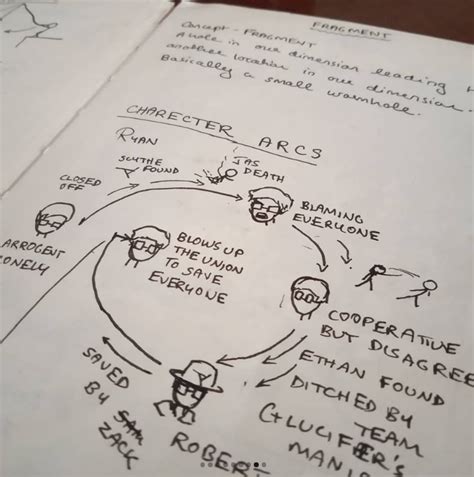 FRAGMENT
Concept - FRAGMENT
A hole in our dimension leading
another location in our dimension.
Basically a small wormhole.
CHARECTER ARCS
RYAN
SCYTHE
FOUND
JAS
DEATH
CLOSED
OFF
BLAMING
EVERYONE
ARROGENT
LONELY
BLOWS UP
THE UNION
TO SAVE
EVERYONE
COOPERATIVE
BUT DISAGREE
ETHAN FOUND
DITCHED BY
TEAM
LUCIFER'S
SAVED
BY
ZACK
ROBERT